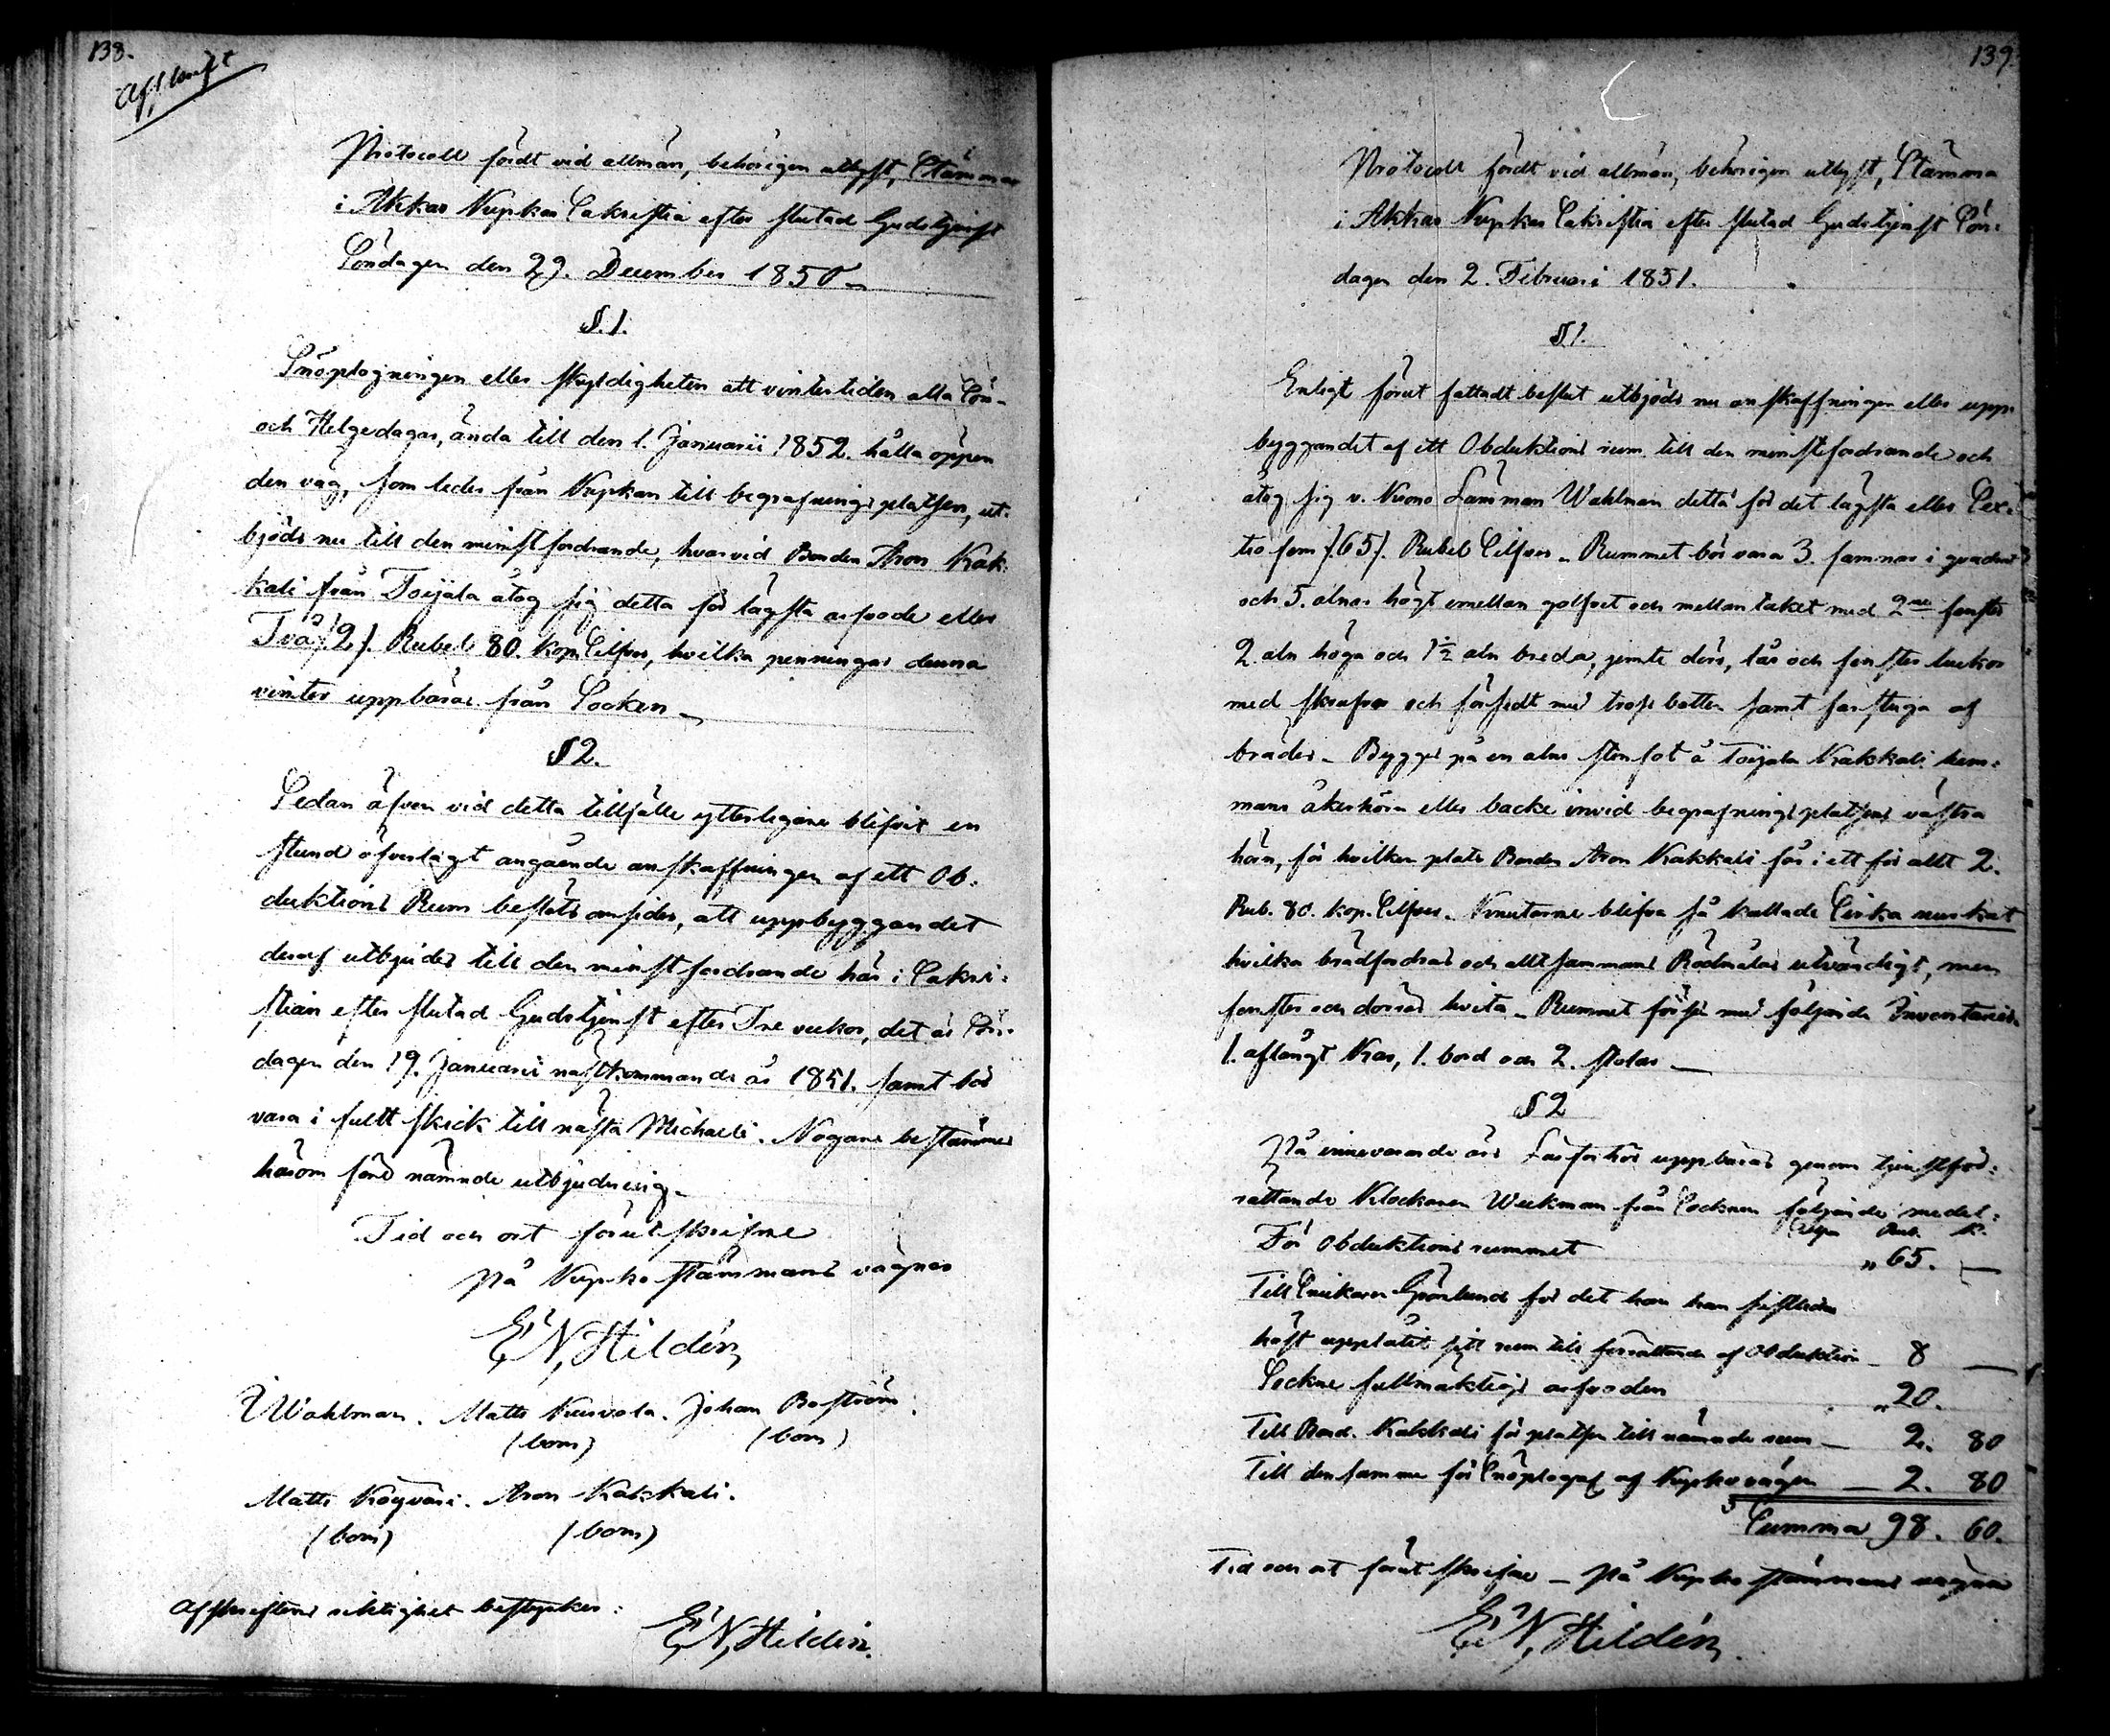 138.
Afskrift
Protocoll fördt vid allmän, behörigen utlyst, Stämma
i Akkas Kyrkas Sakristia efter slutad Gudstjenst
Söndagen den 29. December 1850 –
§. 1.
Snöplogningen eller skyldigheten att vintertiden alla Sön-
och Helgedagar, ända till den 1. Januarii 1852. hålla öppen
den väg, som leder från Kyrkan till begrafningsplatsen, ut-
bjöds nu till den minstfordrande, hvarvid Bonden Aron Kak-
kali från Toijala åtog sig detta för lägsta arfvode eller
Två /:2:/. Rubel 80. kop. Silfver, hvilka penningar denna
vinter uppbäras från Socken –
§ 2.
Sedan äfven vid detta tillfälle ytterligare blifvit en
stund öfverlagt angående anskaffningen af ett Ob-
duktions Rum beslöts omsider, att uppbyggandet
deraf utbjudes till den minstfordrande här i Sakri-
stian efter slutad Gudstjenst efter Tre veckor, det är Sön-
dagen den 19. Januarii nästkommande år 1851. samt bör
vara i fullt skick till nästa Michaeli. Nogare bestämmes
härom före nämnde utbjudning –
Tid och ort förutskrifne
På Kyrkostämmans vägnar
E. N. Hildén
Wahlman. Matts Kurvola. Johan Boström.
(bom) (bom)
Matts Köyväri. Aron Kakkali.
(bom) (bom)
Afskriftens riktighet bestyrker:
E. N. Hildén.
139.
Protocoll fördt vid allmän, behörigen utlyst, Stämma
i Akkas Kyrkas Sakristia efter slutad Gudstjenst Sön-
dagen den 2. Februari 1851.
§ 1.
Enligt förut fattadt beslut utbjöds nu anskaffningen eller upp-
byggandet af ett Obduktions rum till den minstfordrande och
åtog sig v. Länsman Wahlman detta för det lägsta eller Sex-
tio fem /:65:/. Rubel Silfver – Rummet bör vara 3. famnar i quadrat
och 5. alnar högt emellan golfvet och mellantaket med 2ne fenster
2 aln höga och 1½ aln breda, jemte dörr, lås och fenster luckor
med skrufvar och försedt med trossbotten samt farstuga af
bräder – Bygges på en alns stenfot å Toijala Kakkali hem-
mans åkerhörn eller backe invid begrafningsplatsens västra
hörn, för hvilken plats Bonden Aron Kakkali får i ett för allt 2.
Rub. 80. kop. Silfver. Knutarne blifva så kallade Sinka nurkat
hvilka brädfodras och alltsammans Rödmålas utvändigt, men
fenster och dörrar hvita – Rummet förses med följande Inventarier
1. aflångt Kar, 1. bord och 2. stolar –
§ 2
På innevarande års Läsförhör uppbäras genom tjenstför-
rättande Klockaren Weckman från Socknen följande medel:
Silfver Rub. K.
För Obduktions rummet „ 65. –
Till Snickaren Grönlund för det han han sistledne
höst upplåtit sitt rum till förrättande af Obduktion – 8 –
Sockne fullmäktigs arfvoden „ 20.
Till Bond. Kakkali för platsen till nämnde rum – 2. 80
Till densamme för Snöplogn. af Kyrkovägen – 2. 80
Summa 98. 60.
Tid och ort förutskrifne – På Kyrko stämmans vägnar
E. N. Hildén